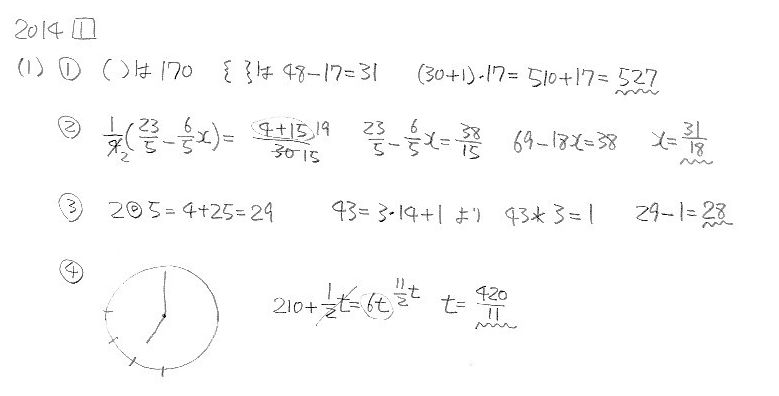 2014 1
(1) ① ( )は170 { }は48-17=31 (30+1)・17=510+17=527
② 1/4 2 (23/5-6/5x)= 4+15/30 19 15 23/5-6/5x=38/15 69-18x=38 x=31/18
③ 2◎5=4+25=29 43=3・14+1より 43*3=1 29-1=28
④ 210+1/2t=6t 11/2t t=420/11